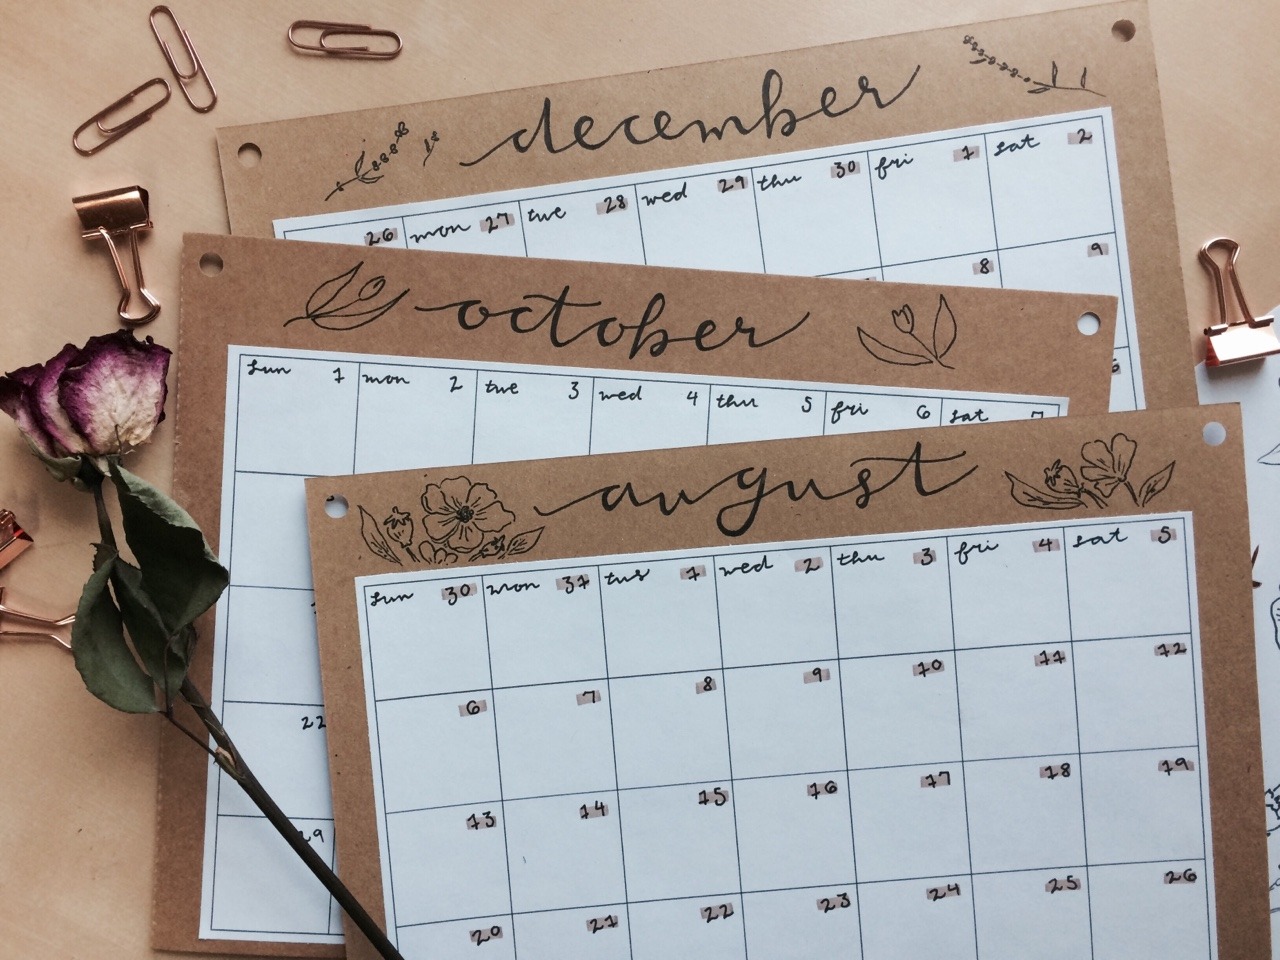 december
26 mon 27 tue 28 wed 29 thu 30 fri 1 sat 2
8 9
october
sun 1 mon 2 tue 3 wed 4 thu 5 fri 6 sat 7
22
29
august
sun 30 mon 31 tus 1 wed 2 thu 3 fri 4 sat 5
6 7 8 9 10 11 12
13 14 15 16 17 18 19
20 21 22 23 24 25 26